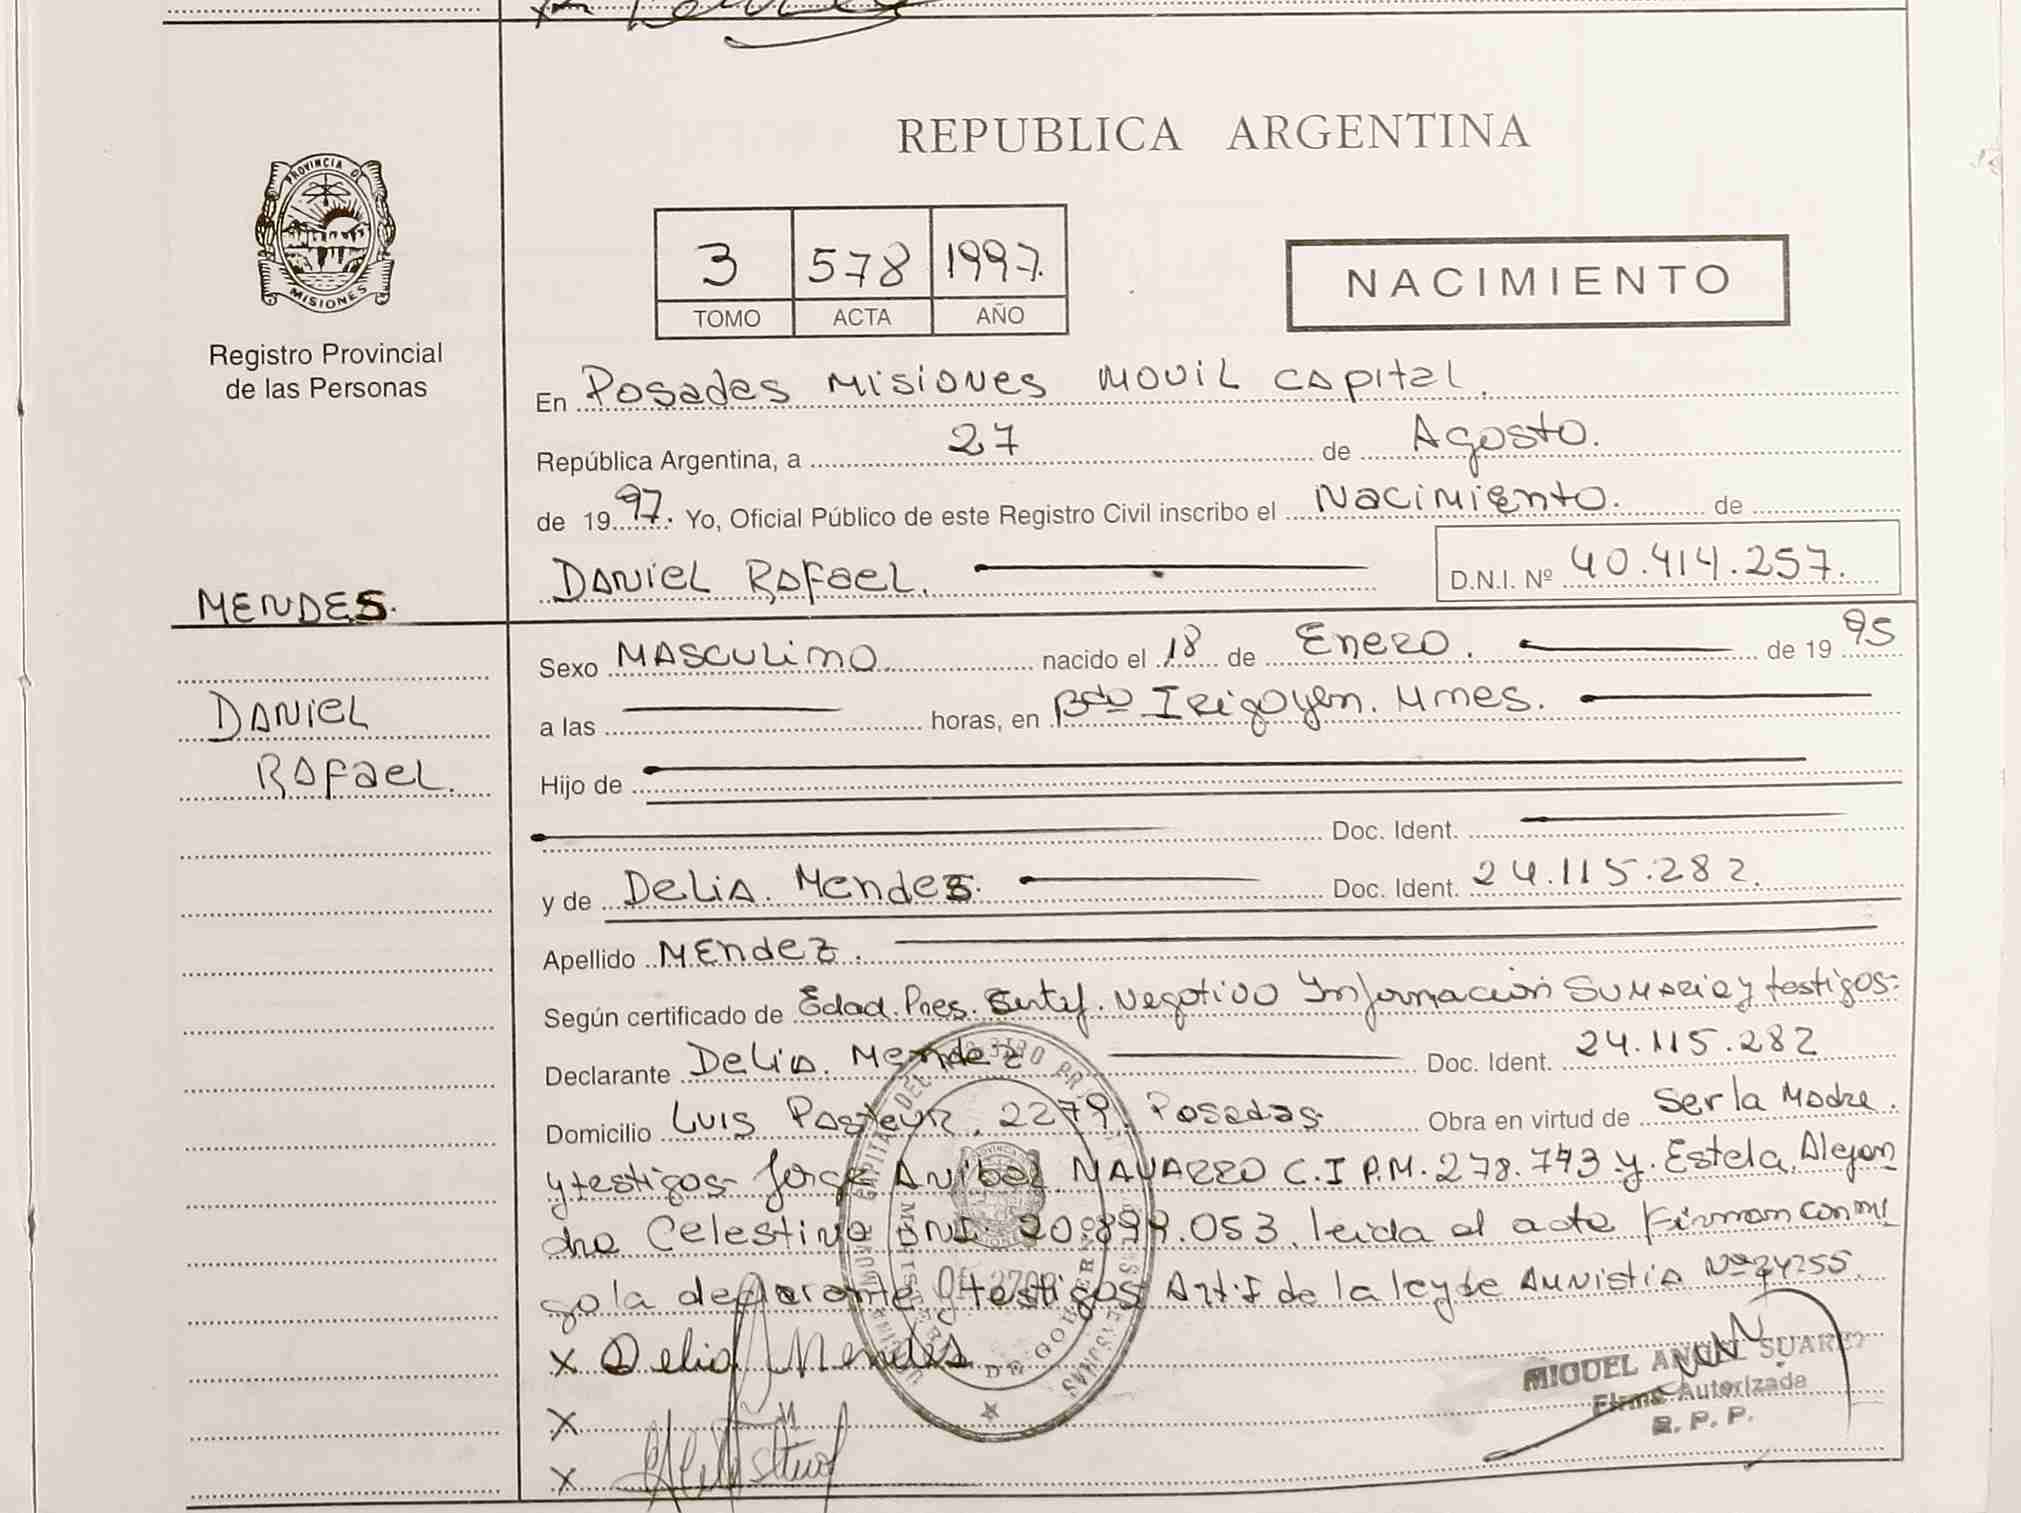 REPUBLICA ARGENTINA
PROVINCIA DE
MISIONES
Registro Provincial
de las Personas
3 578 1997.
TOMO ACTA AÑO
NACIMIENTO
En Posadas Misiones Movil Capital.
República Argentina, a 27 de Agosto.
de 1997. Yo, Oficial Público de este Registro Civil inscribo el Nacimiento. de
Daniel Rafael. D.N.I. Nº 40.414.257.
MENDES.
Daniel
Rafael.
Sexo Masculino nacido el 18 de Enero. de 1995
a las horas, en Bdo Irigoyen. Mnes.
Hijo de
Doc. Ident.
y de Delia. Mendez. Doc. Ident. 24.115.282.
Apellido Mendez.
Según certificado de Edad. Pres. Negativo Información Sumaria y testigos-
Declarante Delia. Mendez Doc. Ident. 24.115.282
Domicilio Luis Pasteur. 2279. Posadas. Obra en virtud de Ser la Madre.
y testigos- Jorge Anibal NAVARRO C.I P.M. 278.743 y. Estela Alejan
dra Celestino DNI. 20.899.053. leida el acta Firman conmi
go la declarante y testigos Art. 1 de la ley de Amnistia Nº 24755.
X Delia Mendes
X
X
MIGUEL ANGEL SUAREZ
Firma Autorizada
R. P. P.